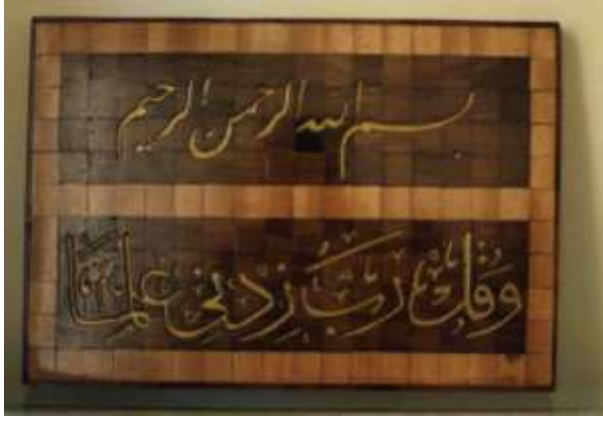 بسم الله الرحمن الرحيم
وَقُل رَّبِّ زِدْنِي عِلْمًا